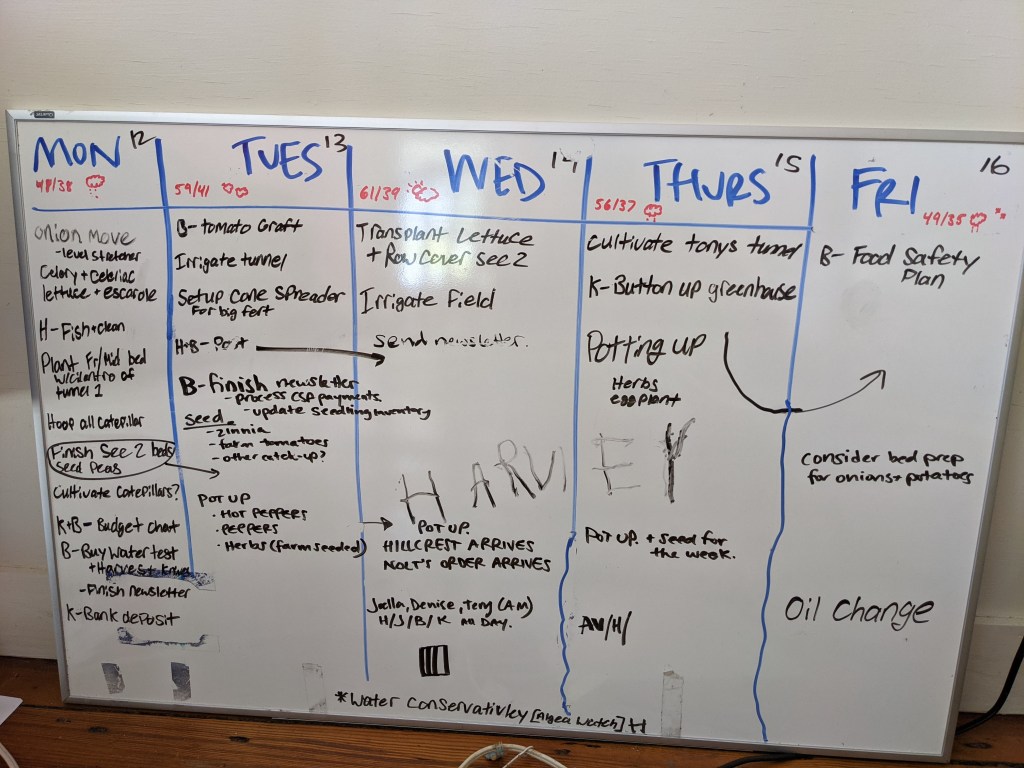 MON 12
48/38
onion move
- level stretcher
Celery + Celeriac
lettuce + escarole
H - Fish + clean
Plant Fr/Mid bed
w/cilantro of
tunnel 1
Hoop all Catepillar
Finish Sec 2 beds
seed Peas
Cultivate Catepillars?
K+B - Budget chart
B - Buy Water test
+ Harvest Knives
- Finish newsletter
K - Bank deposit
TUES 13
59/41
B - tomato Graft
Irrigate tunnel
Setup Cone Spreader
For big fert
H+B -
B - Finish newsletter
- process CSP payments
- update Seedling Inventory
Seed
- Zinnia
- farm tomatoes
- other catch-up?
POT UP
• HOT PEPPERS
• PEPPERS
• Herbs (farm seeded)
WED 14
61/39
Transplant Lettuce
+ Row Cover Sec 2
Irrigate Field
send newsletter.
HARVEY
POT UP.
HILLCREST ARRIVES
NOLT'S ORDER ARRIVES
Denise, (AM)
H/J/B/K All DAY.
THURS 15
56/37
Cultivate tonys tunnel
K - Button up greenhouse
Potting up
Herbs
eggplant
POT UP. + Seed for
the week.
/H/
FRI 16
49/35
B - Food Safety
Plan
consider bed prep
for onions + potatoes
Oil Change
*Water Conservativley [Algea Watch] H